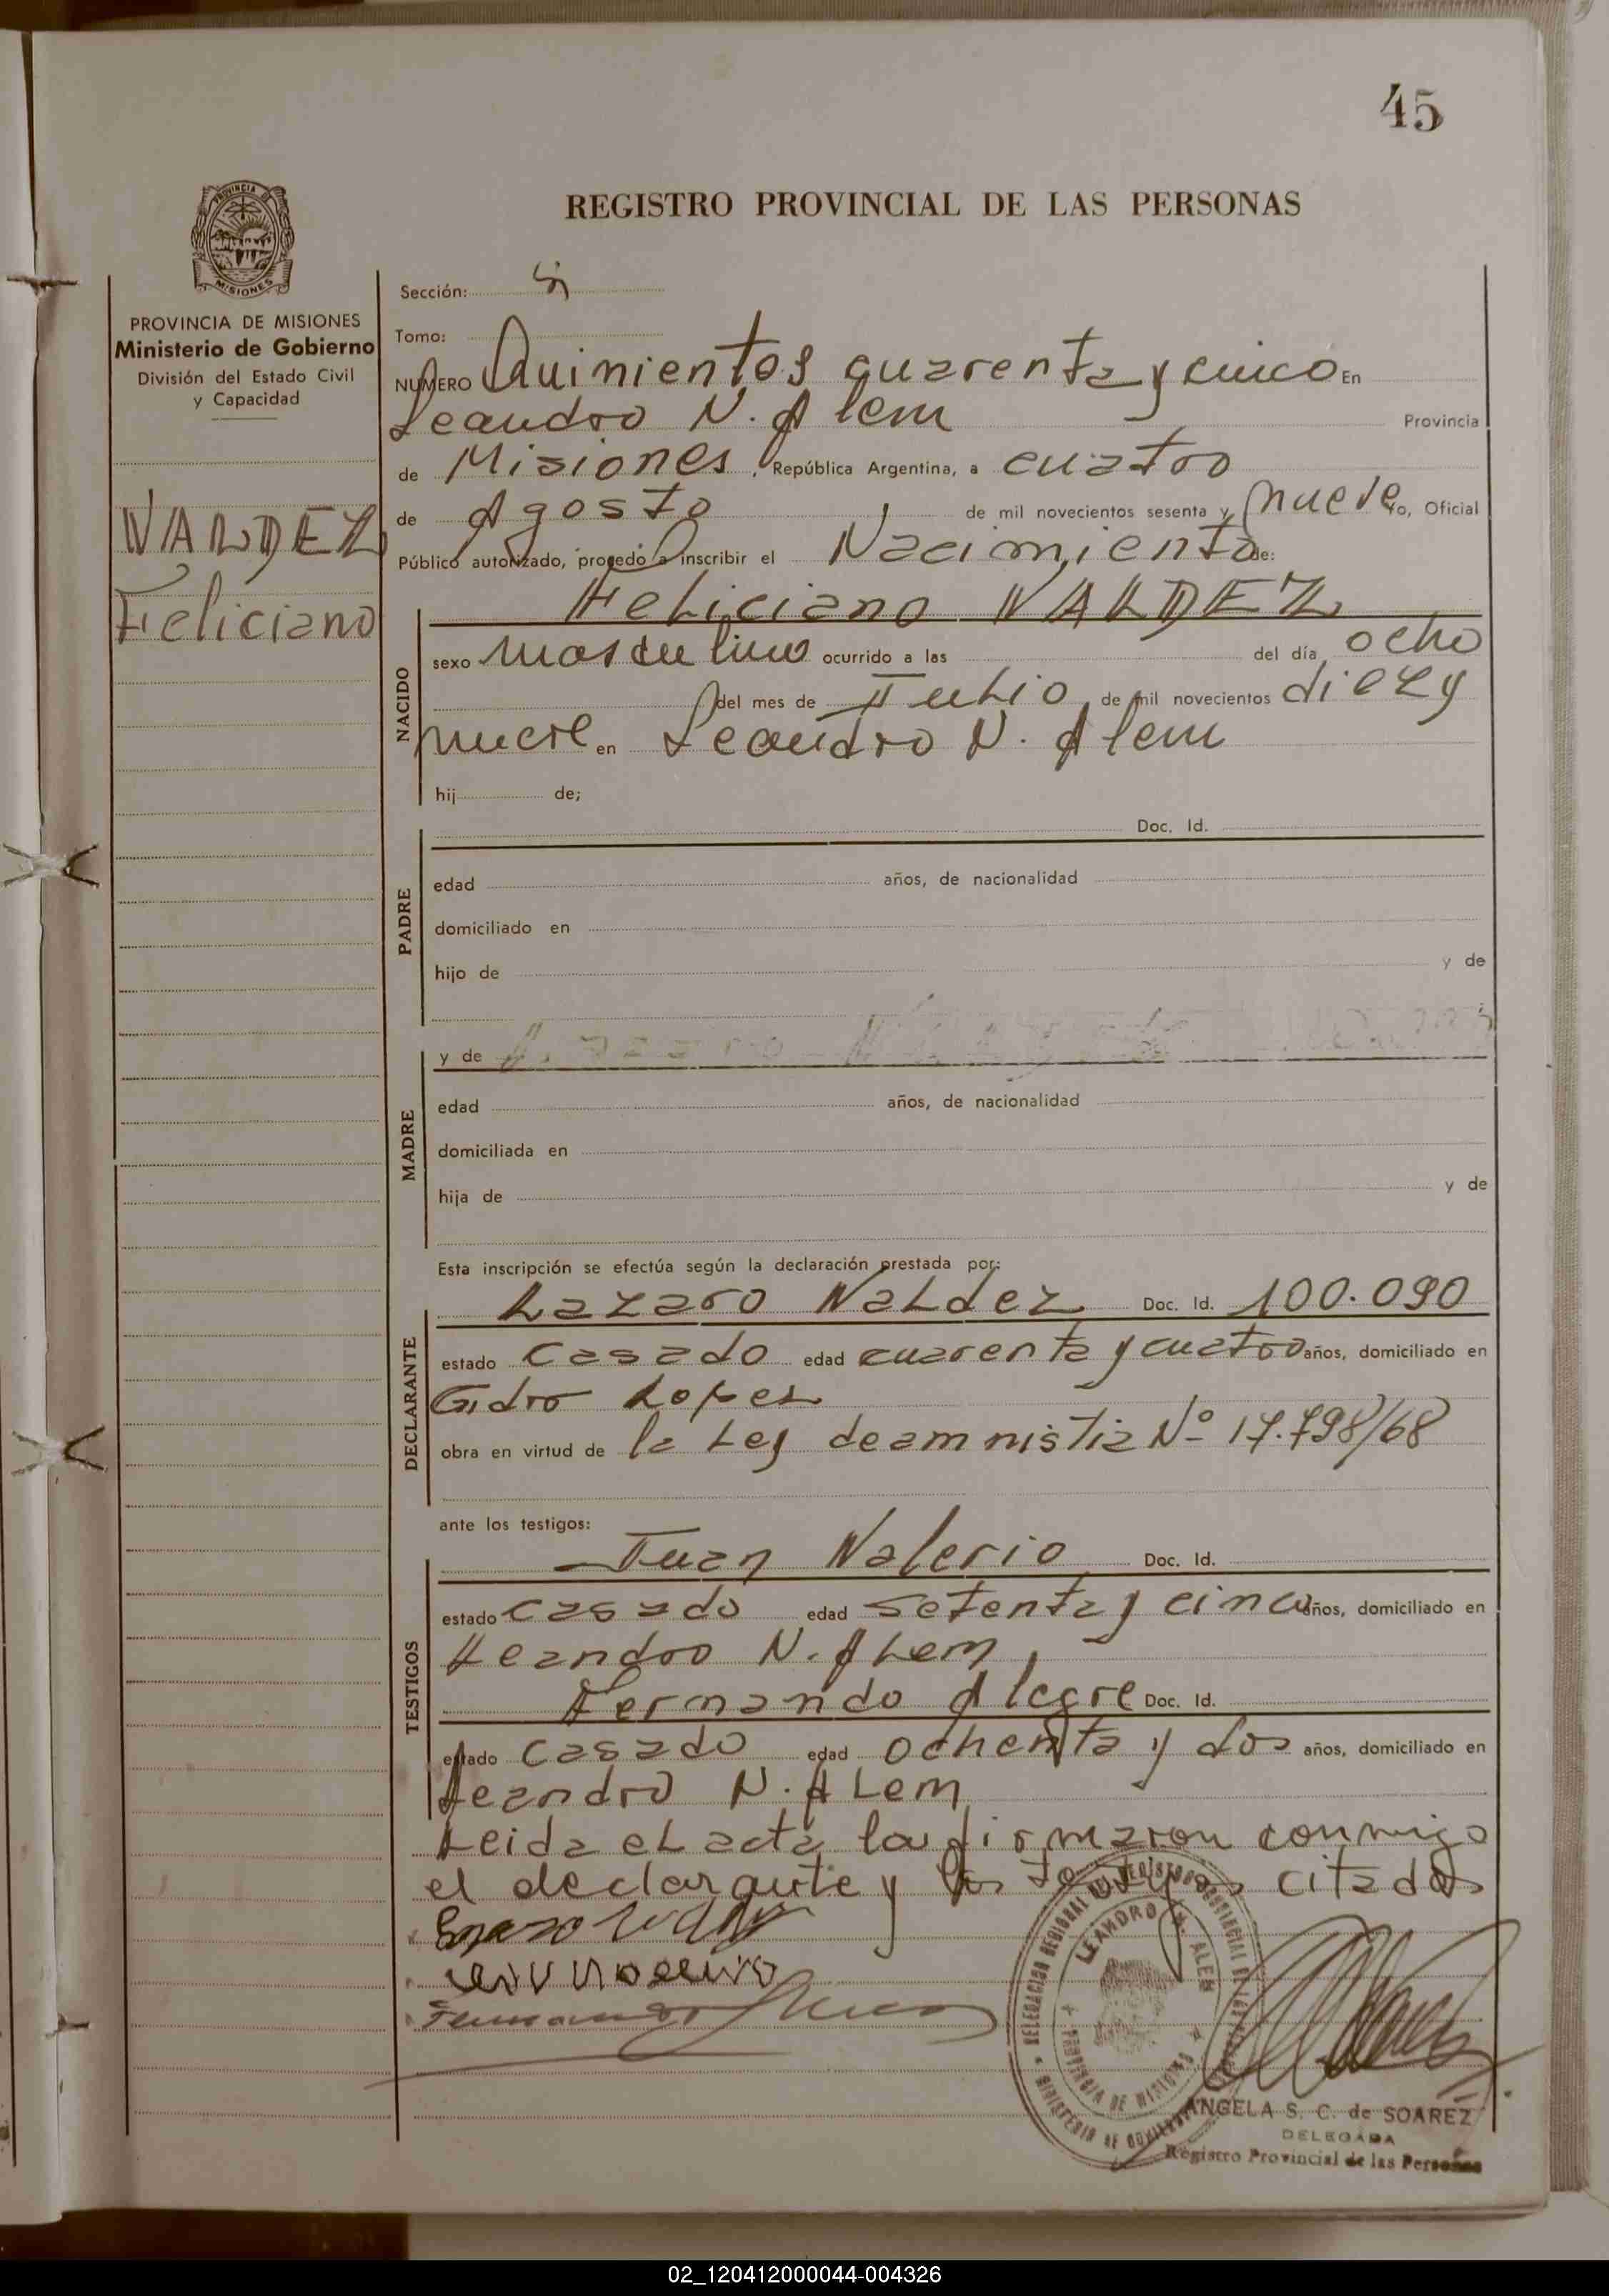 45
REGISTRO PROVINCIAL DE LAS PERSONAS
PROVINCIA DE MISIONES
PROVINCIA DE MISIONES
Ministerio de Gobierno
División del Estado Civil
y Capacidad
VALDEZ
Feliciano
Sección:
Tomo:
NUMERO Quinientos cuarenta y cinco En
Leandro N. Alem Provincia
de Misiones, República Argentina, a cuatro
de Agosto de mil novecientos sesenta y nueve yo, Oficial
Público autorizado, procedo a inscribir el Nacimiento de:
Feliciano VALDEZ
NACIDO
sexo masculino ocurrido a las del día ocho
del mes de Julio de mil novecientos diez y
nueve en Leandro N. Alem
hij de;
PADRE
Doc. Id.
edad años, de nacionalidad
domiciliado en
hijo de y de
MADRE
y de
edad años, de nacionalidad
domiciliada en
hija de y de
Esta inscripción se efectúa según la declaración prestada por:
DECLARANTE
Lazaro Valdez Doc. Id. 100.090
estado casado edad cuarenta y cuatro años, domiciliado en
Gdro Lopez
obra en virtud de la Ley de amnistia Nº 17.798/68
ante los testigos:
TESTIGOS
Juan Valerio Doc. Id.
estado casado edad setenta y cinco años, domiciliado en
Leandro N. Alem
Fernando Alegre Doc. Id.
estado casado edad ochenta y dos años, domiciliado en
Leandro N. Alem
Leida el acta la firmaron conmigo
el declarante y los testigos citados
LEANDRO N. ALEM
PROVINCIA DE MISIONES
ANGELA S. C. de SOAREZ
DELEGADA
Registro Provincial de las Personas
02_120412000044-004326